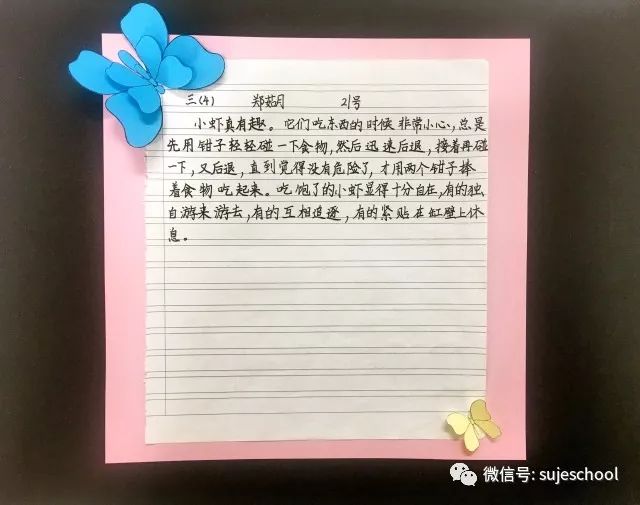 三(4) 郑茹月 21号
小虾真有趣。它们吃东西的时候非常小心,总是
先用钳子轻轻碰一下食物,然后迅速后退,接着再碰
一下,又后退,直到觉得没有危险了,才用两个钳子捧
着食物吃起来。吃饱了的小虾显得十分自在,有的独
自游来游去,有的互相追逐,有的紧贴在缸壁上休
息。
微信号: sujeschool